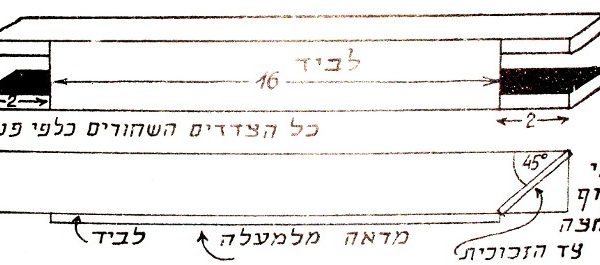 לביד
16
2
2
כל הצדדים השחורים כלפי
45°
מחצה
לביד
מדאה מלמעלה
צד הזכוכית